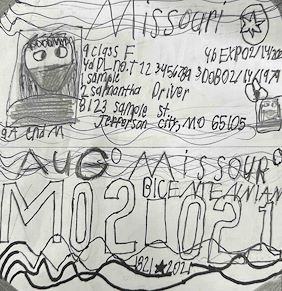 Missouri
9 class F
4d DL.no.t 12 3456789
1 sample
2 samantha Driver
8123 sample st.
Jefferson city, MO 65105
9A end M
AUG Missouri
BICENTENNIAL
MO2 1O21
1821 ★ 2021